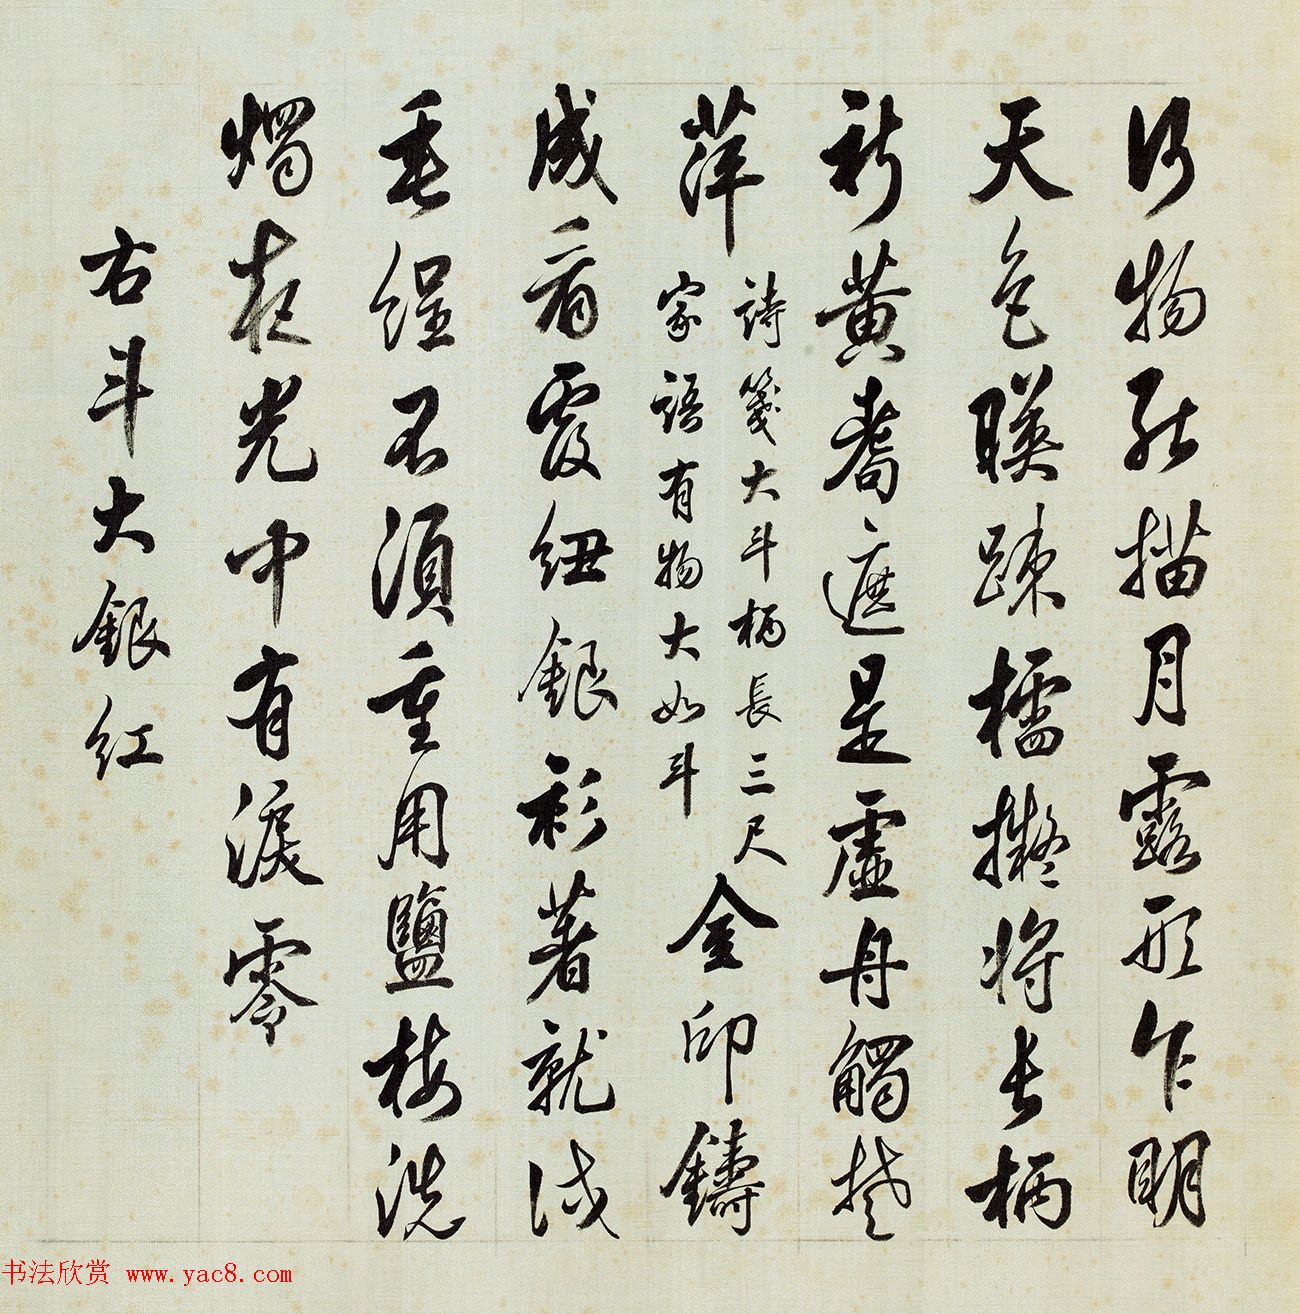 何物能描月露形乍明
天色暎疎櫺擬將長柄
祈黄耇遮是虚舟觸楚
萍
詩箋大斗柄長三尺
家語有物大如斗
金印鑄
成看霞紐銀衫著就
毛不須重用鹽梅洗
燭夜光中有淚零
右斗大銀紅
书法欣赏 www.yac8.com